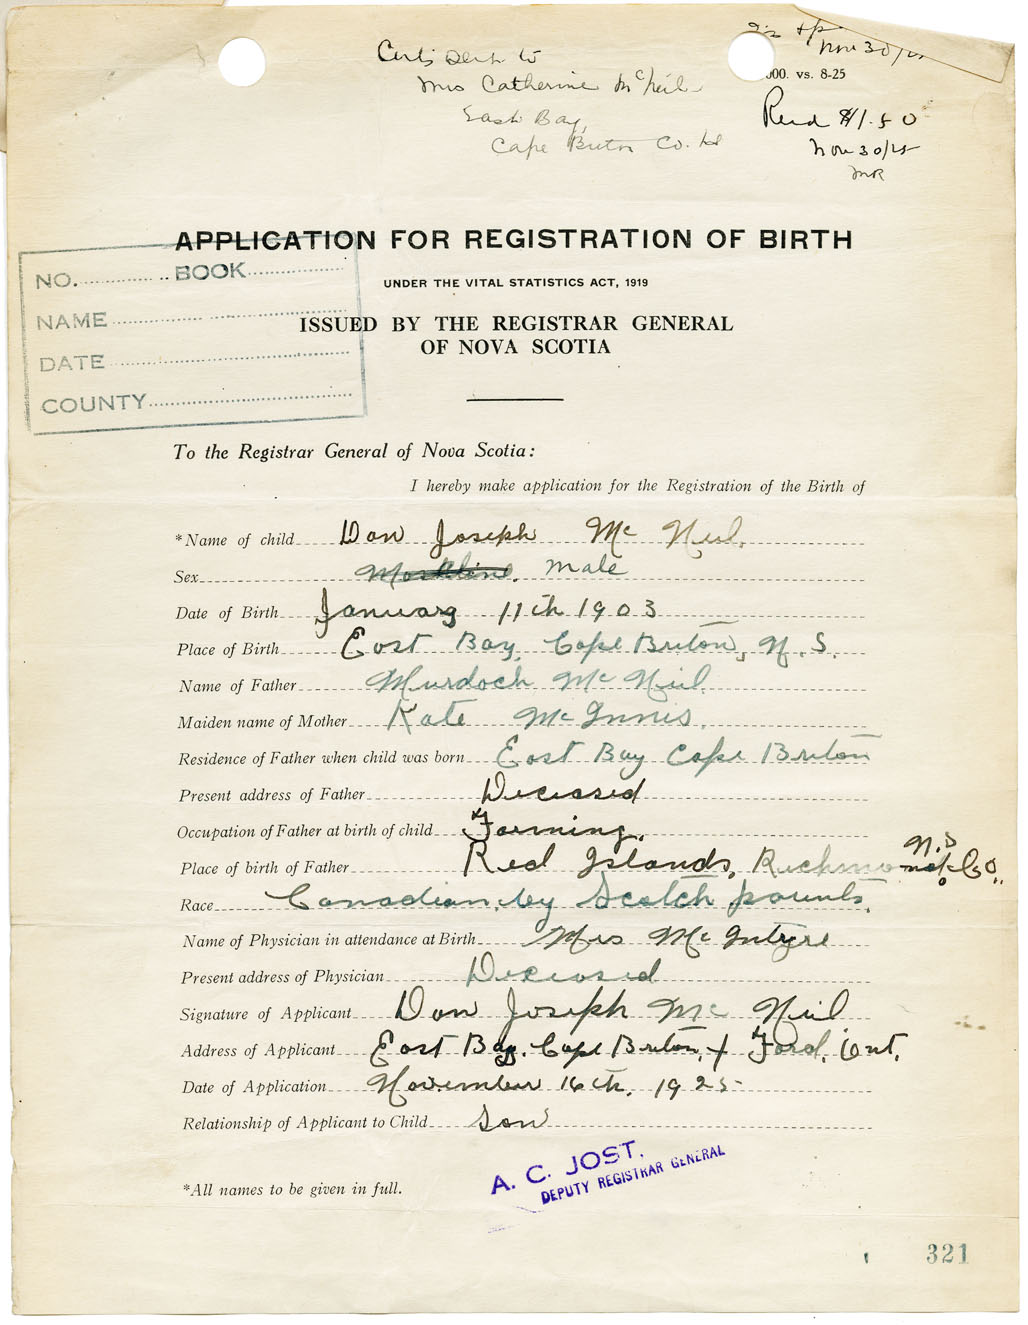 Certs Sent to
Mrs Catherine McNeil
East Bay,
Cape Breton Co. NS
Nov 30/25
000. vs. 8-25
Recd $1.50
Nov 30/25
MR
APPLICATION FOR REGISTRATION OF BIRTH
UNDER THE VITAL STATISTICS ACT, 1919
ISSUED BY THE REGISTRAR GENERAL
OF NOVA SCOTIA
NO. BOOK
NAME
DATE
COUNTY
To the Registrar General of Nova Scotia:
I hereby make application for the Registration of the Birth of
*Name of child Dan Joseph Mc Neil.
Sex Male
Date of Birth January 11th 1903
Place of Birth East Bay, Cape Briton, N. S.
Name of Father Murdoch Mc Neil
Maiden name of Mother Kate McInnis.
Residence of Father when child was born East Bay Cape Briton
Present address of Father Deceased
Occupation of Father at birth of child Farming.
Place of birth of Father Red Islands, Richmond Co. N.S
Race Canadian, by Scotch parents.
Name of Physician in attendance at Birth Mrs McIntyre
Present address of Physician Deceased
Signature of Applicant Dan Joseph Mc Neil
Address of Applicant East Bay, Cape Briton, + Ford, Ont.
Date of Application November 16th, 1925
Relationship of Applicant to Child Son
A. C. JOST.
DEPUTY REGISTRAR GENERAL
*All names to be given in full.
321